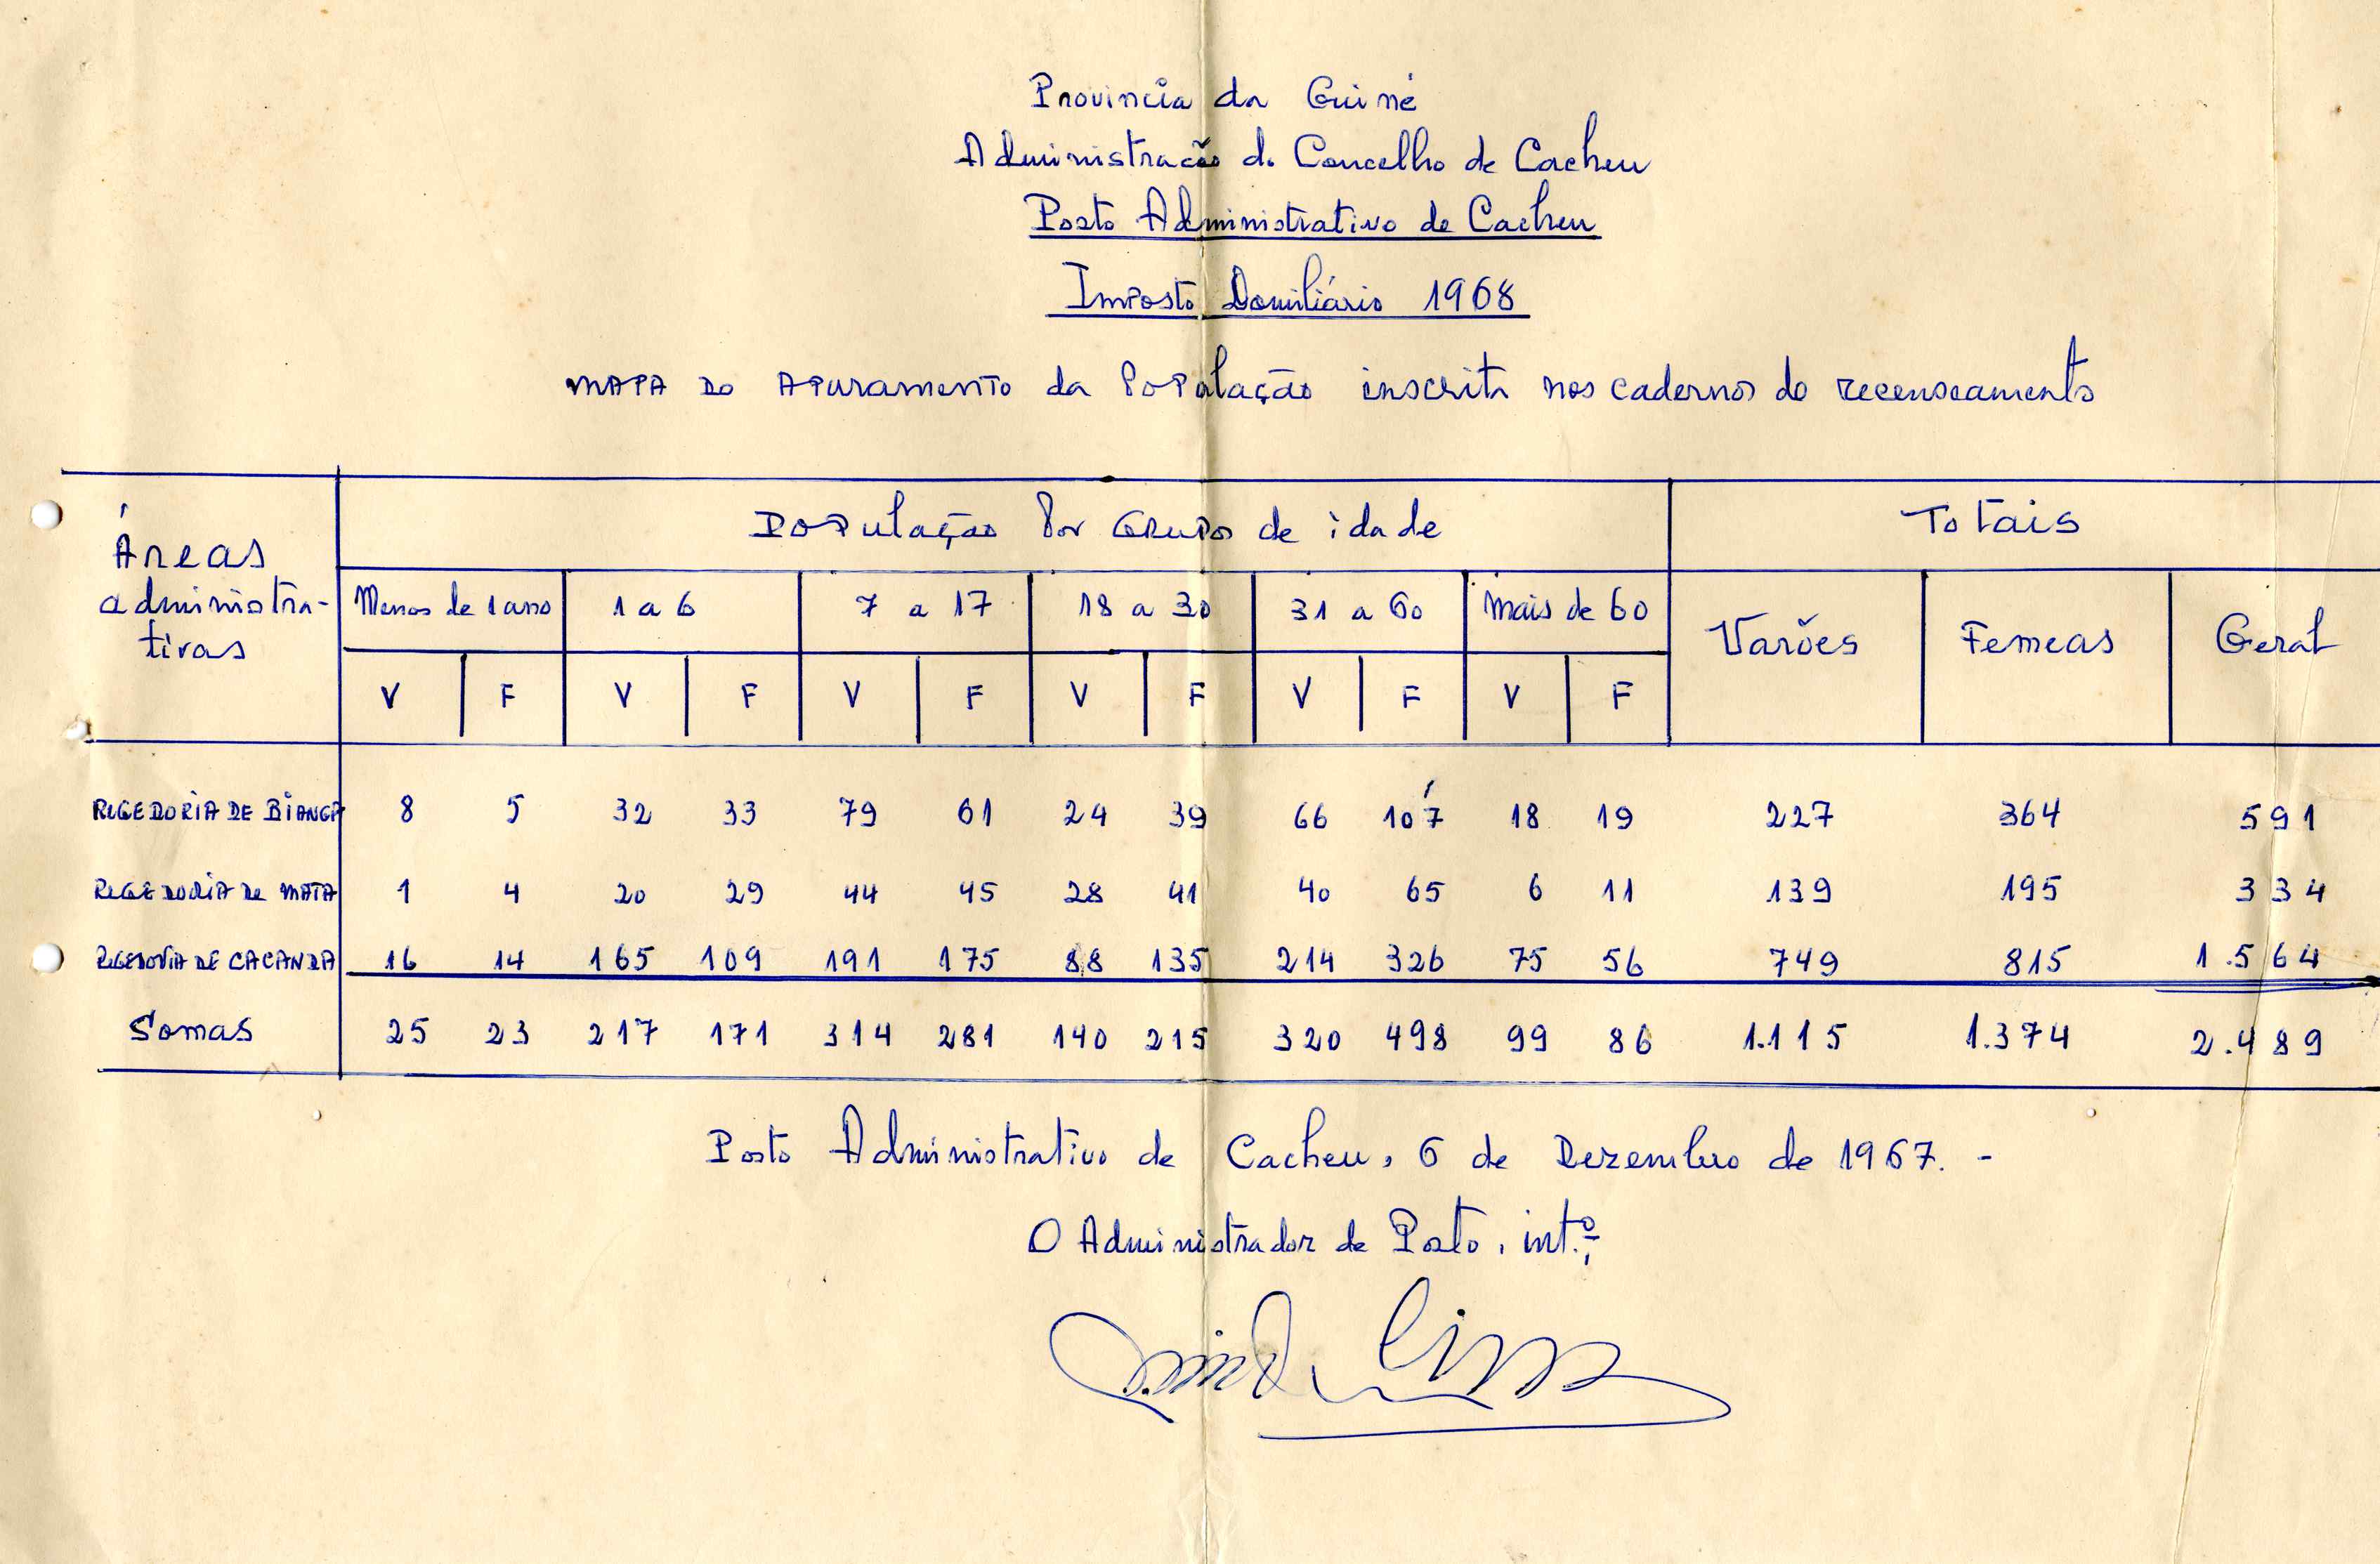 Provincia da Guiné
Administracão do Concelho de Cacheu
Posto Administrativo de Cacheu
Imposto Domiliário 1968
MAPA DO APURAMENTO da População inscrita nos cadernos do recenseamento
Áreas administra-tivas
População Por Grupos de idade
Totais
Menos de 1 ano 1 a 6 7 a 17 18 a 30 31 a 60 Mais de 60
Varões Femeas Geral
V F V F V F V F V F V F
REGEDORIA DE BIANGA 8 5 32 33 79 61 24 39 66 107 18 19 227 364 591
REGEDORIA DE MATA 1 4 20 29 44 45 28 41 40 65 6 11 139 195 334
REGEDORIA DE CACANDA 16 14 165 109 191 175 88 135 214 326 75 56 749 815 1.564
Somas 25 23 217 171 314 281 140 215 320 498 99 86 1.115 1.374 2.489
Posto Administrativo de Cacheu, 6 de Dezembro de 1967. -
O Administrador de Posto, int.º,